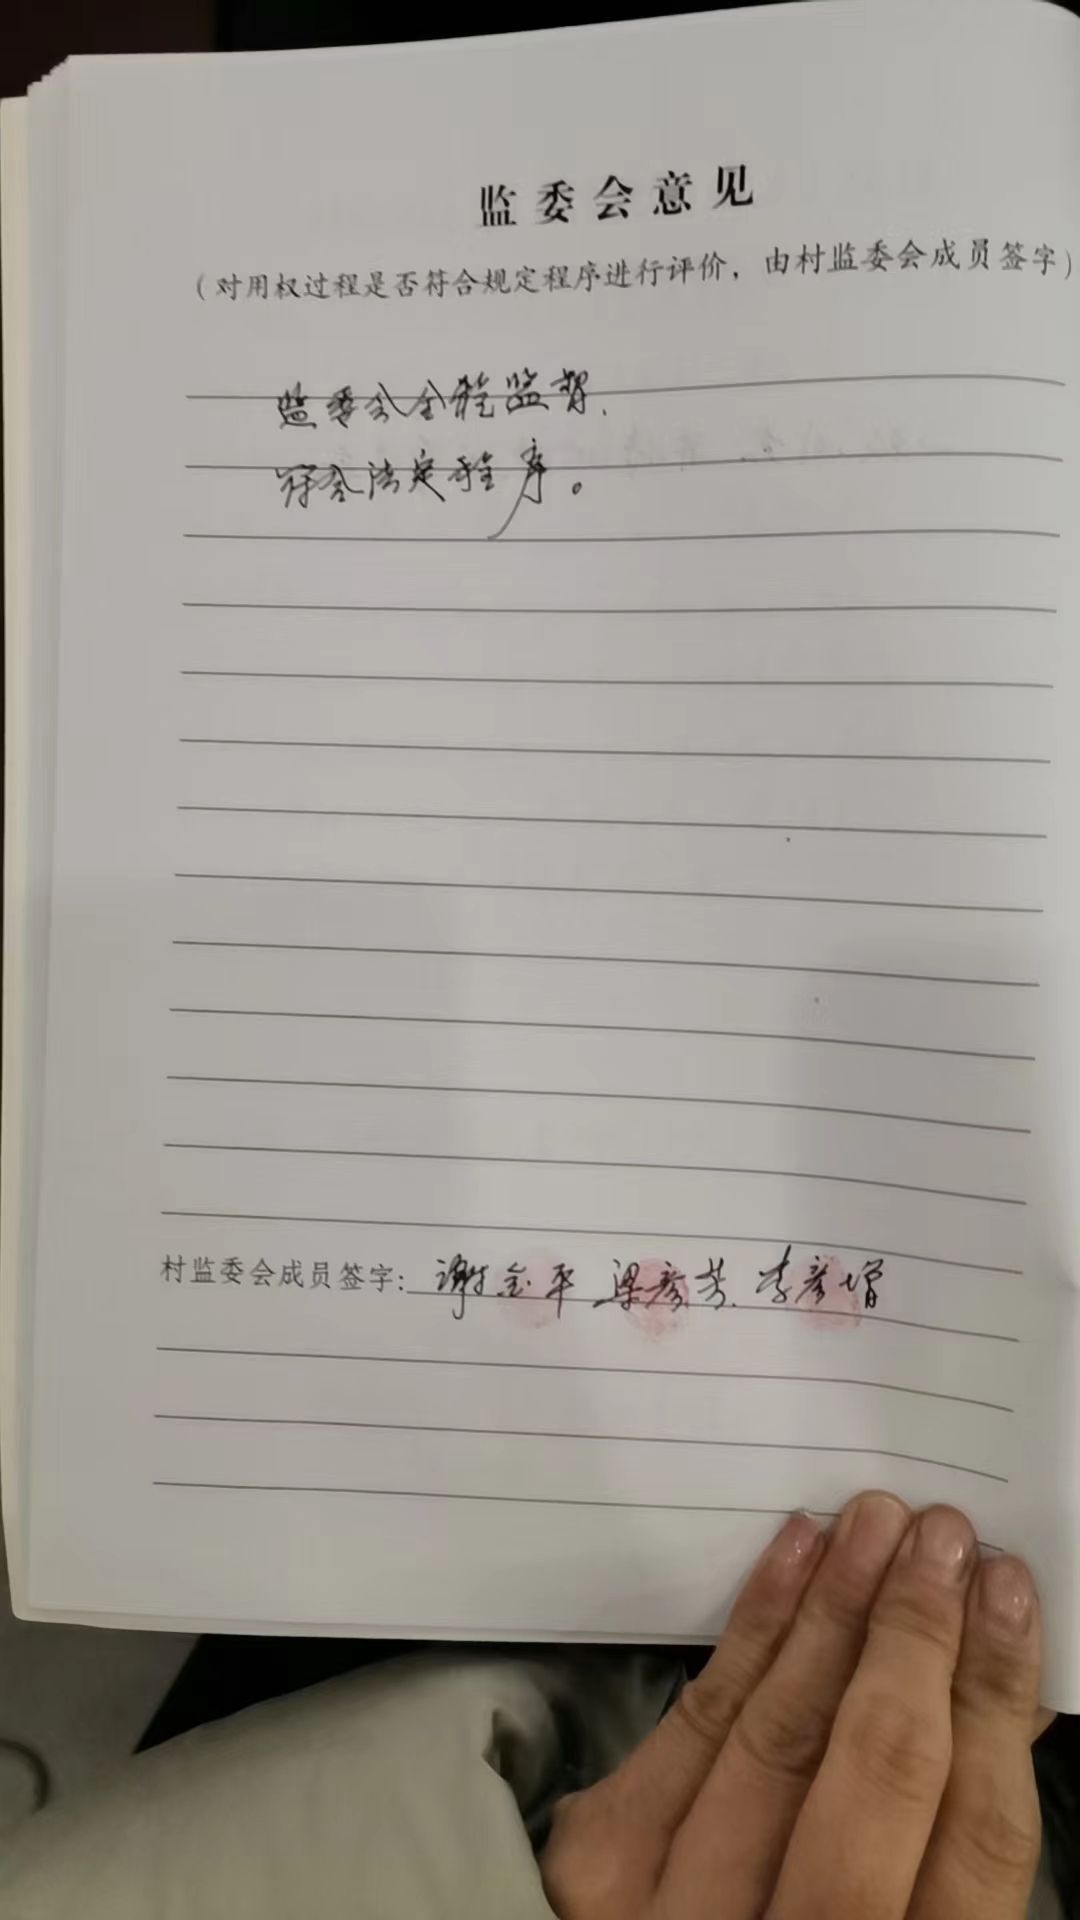 监委会意见
（对用权过程是否符合规定程序进行评价，由村监委会成员签字）
监委会全程监督.
符合法定程序。
村监委会成员签字：谢金平 梁彦芳. 李彦增